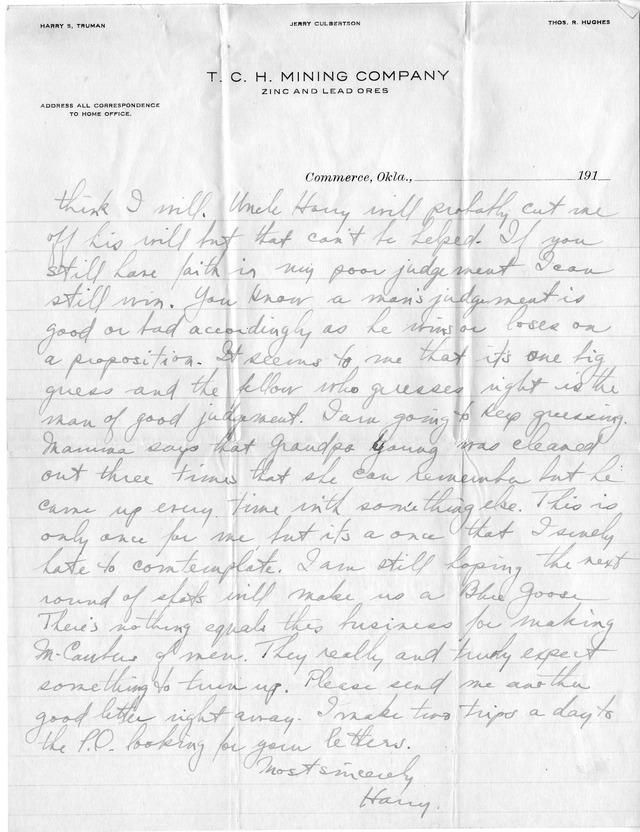 HARRY S, TRUMAN
JERRY CULBERTSON
THOS. R. HUGHES
T. C. H. MINING COMPANY
ZINC AND LEAD ORES
ADDRESS ALL CORRESPONDENCE
TO HOME OFFICE.
Commerce, Okla., 191
think I will. Uncle Harry will probably cut me
off his will but that can't be helped. If you
still have faith in my poor judgement I can
still win. You know a man's judgement is
good or bad accordingly as he wins or loses on
a proposition. It seems to me that it's one big
guess and the fellow who guesses right is the
man of good judgement. I am going to keep guessing.
Mamma says that Grandpa Young was cleaned
out three times that she can remember but he
came up every time with something else. This is
only once for me but it's a once that I surely
hate to comtemplate. I am still hoping the next
round of shots will make us a Blue Goose
There's nothing equals this business for making
McCawbers of men. They really and truly expect
something to turn up. Please send me another
good letter right away. I make two trips a day to
the P.O. looking for your letters.
Most sincerely
Harry.